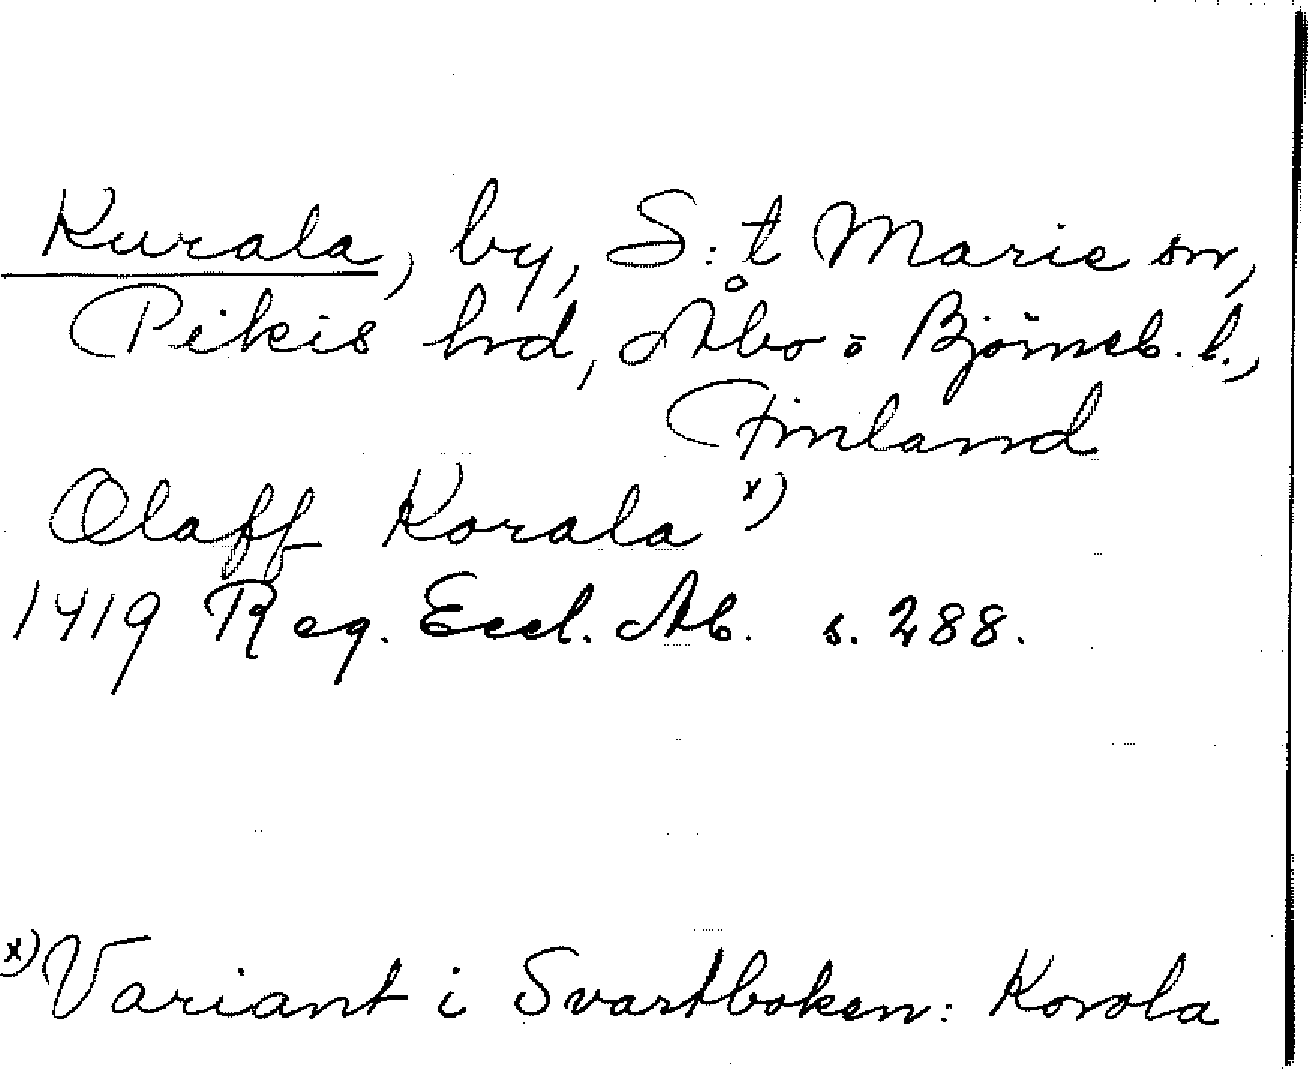 Kurala, by, S:t Marie sn,
Pikis hrd, Åbo o Björneb. l.,
Finland
Olaff Korala x)
1419 Reg. Eccl. Ab. s. 288.
x) Variant i Svartboken: Korola